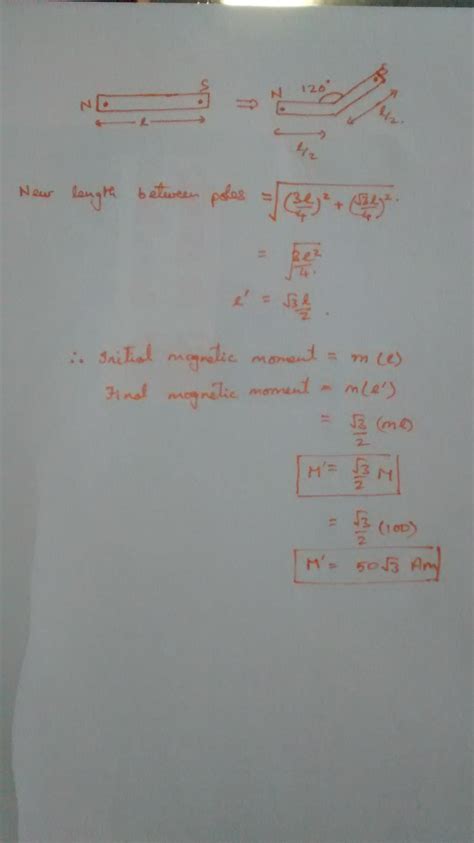 N S ⇒ N 120° S
l l/2 l/2.
New length between poles = √((3l/4)² + (√3l/4)²)
= √(3l²/4)
l' = √3l/2.
∴ Initial magnetic moment = m(l)
Final magnetic moment = m(l')
= √3/2 (ml)
M' = √3/2 M
= √3/2 (100)
M' = 50√3 Am